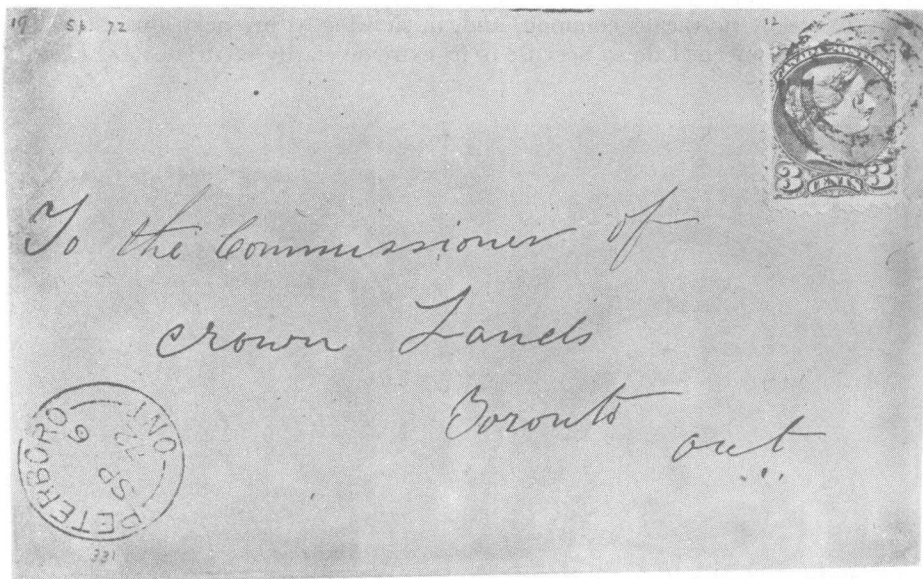 19 Sp 72
12
3 CENTS 3
To the Commissioner of
Crown Lands
Toronto
Ont
PETERBORO ONT
SP
72